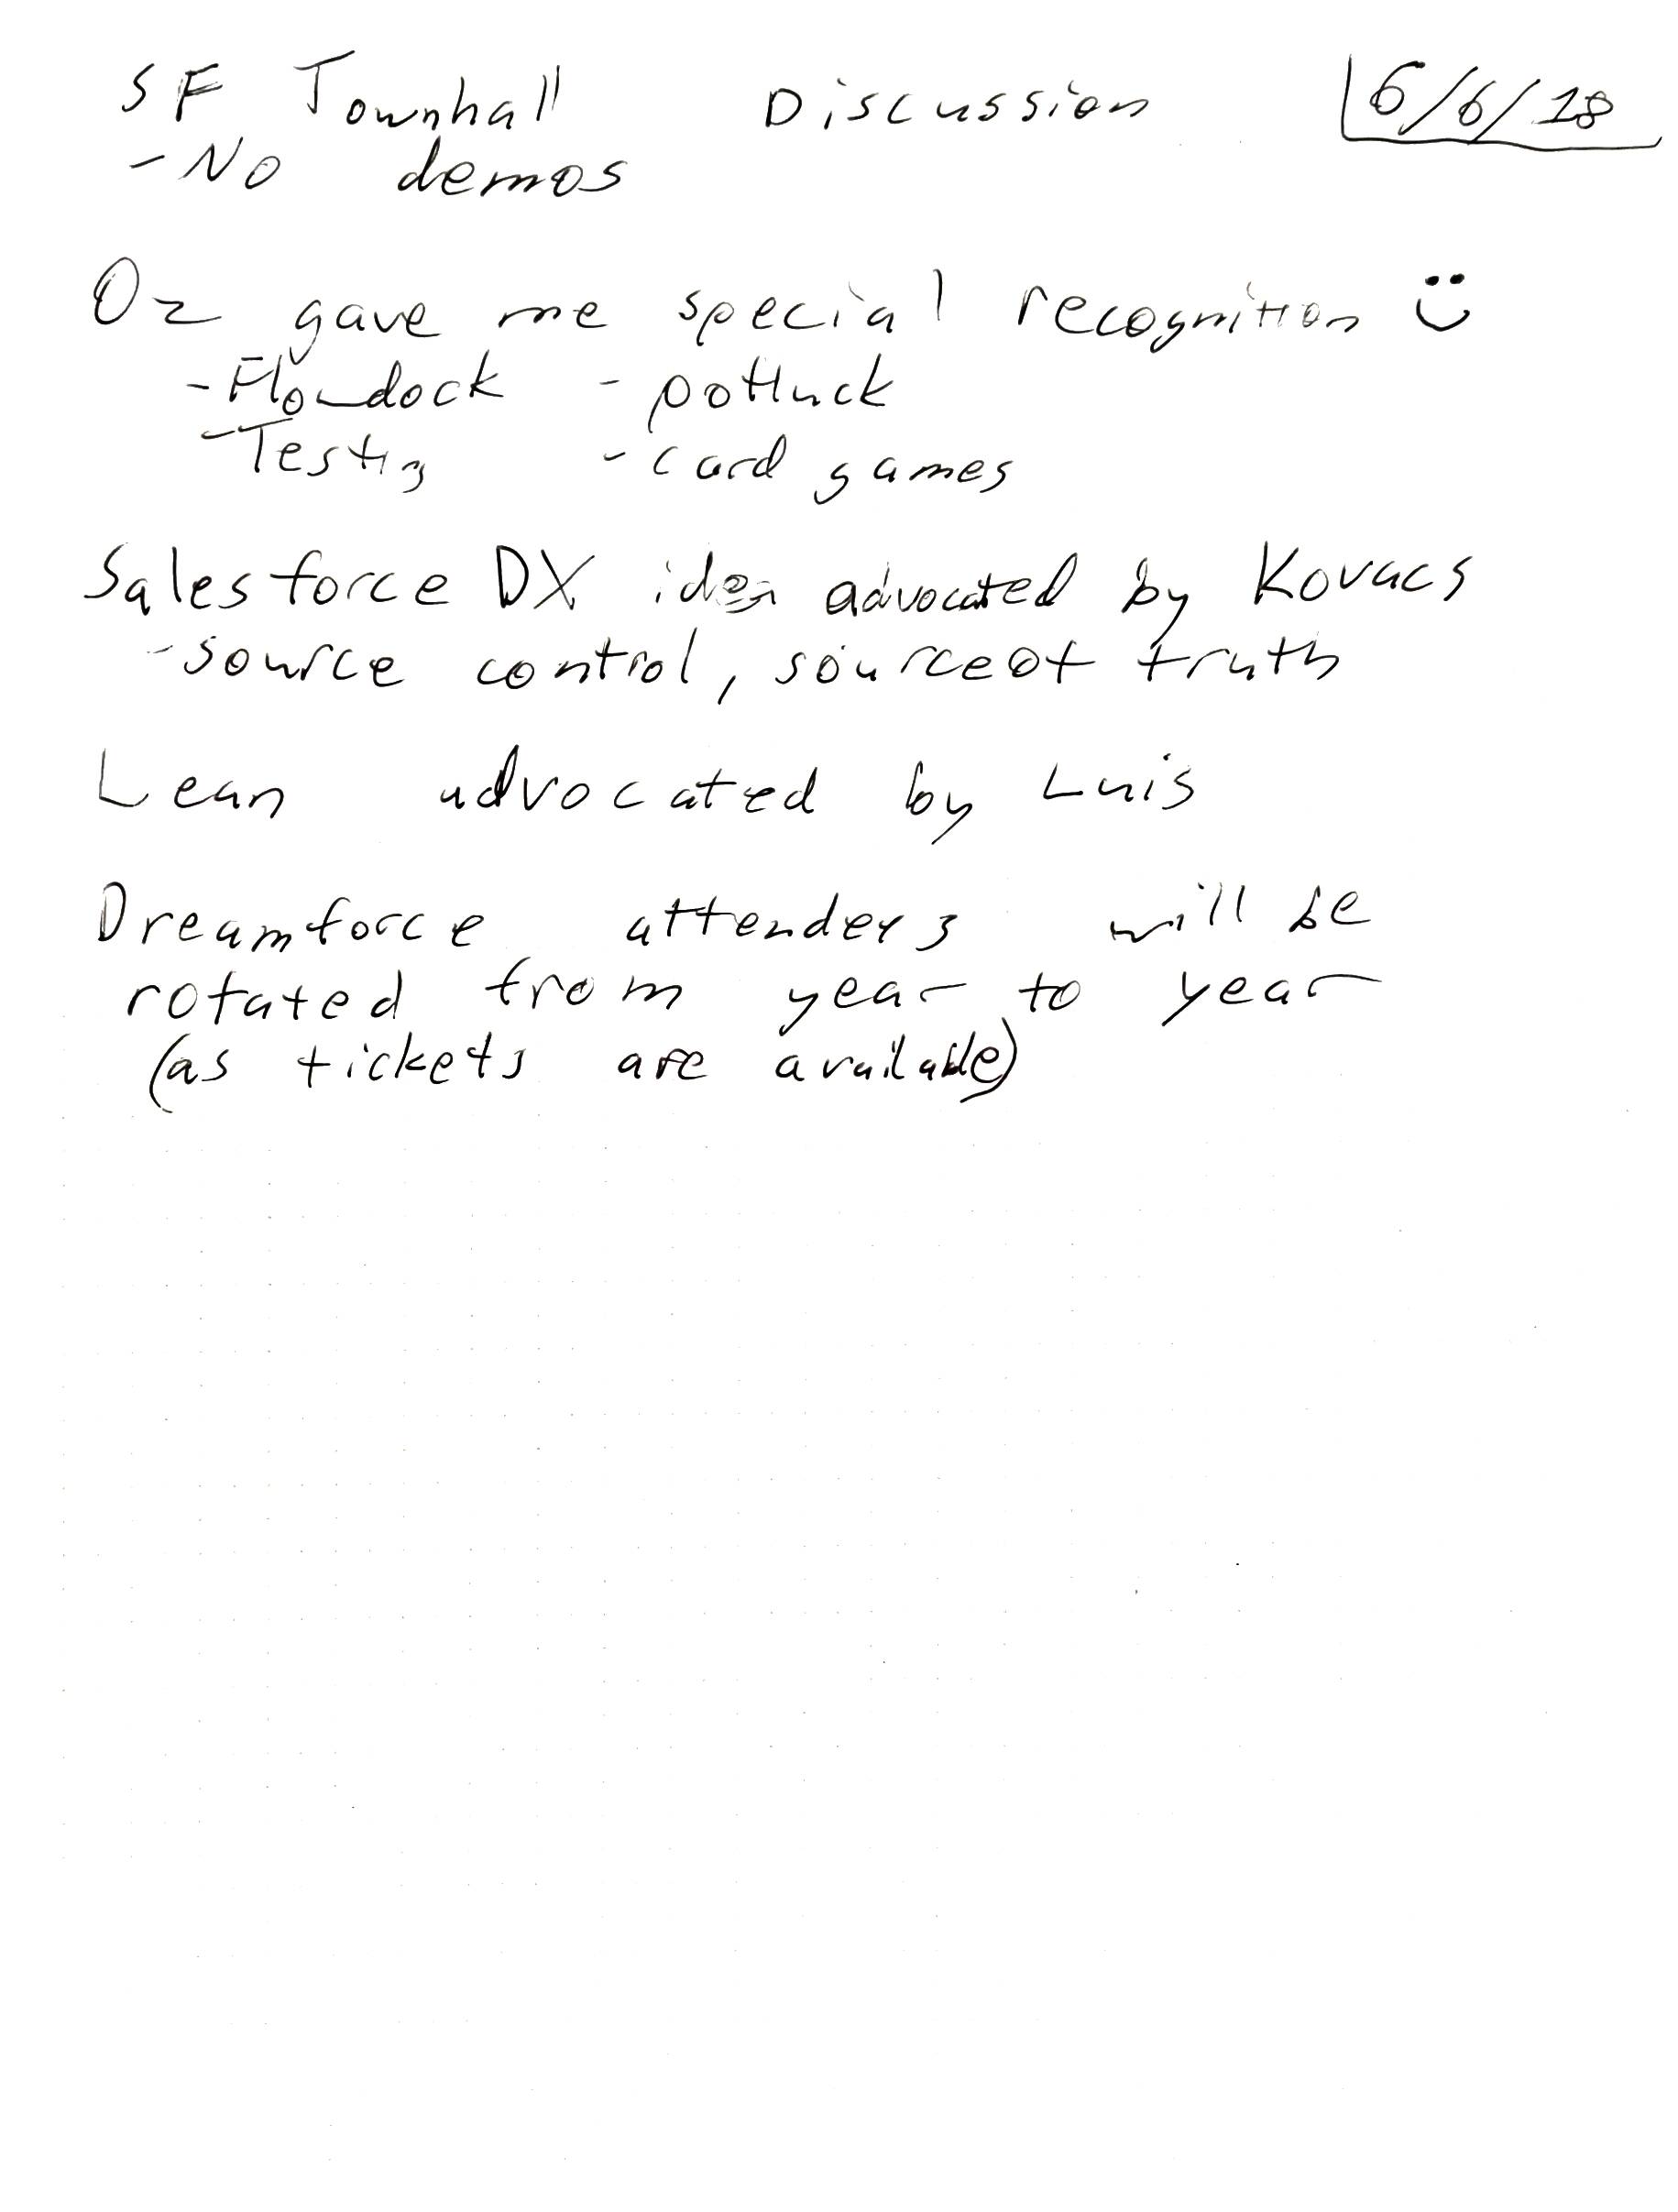 SF Townhall Discussion 6/6/18
- No demos
Oz gave me special recognition :)
- Flowdock - potluck
- Testing - card games
Salesforce DX idea advocated by Kovacs
- source control, source of truth
Lean advocated by Luis
Dreamforce attenders will be
rotated from year to year
(as tickets are available)